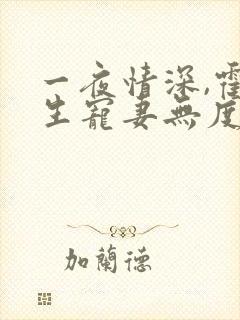 一夜情深,霍
生寵妻無度
加蘭德